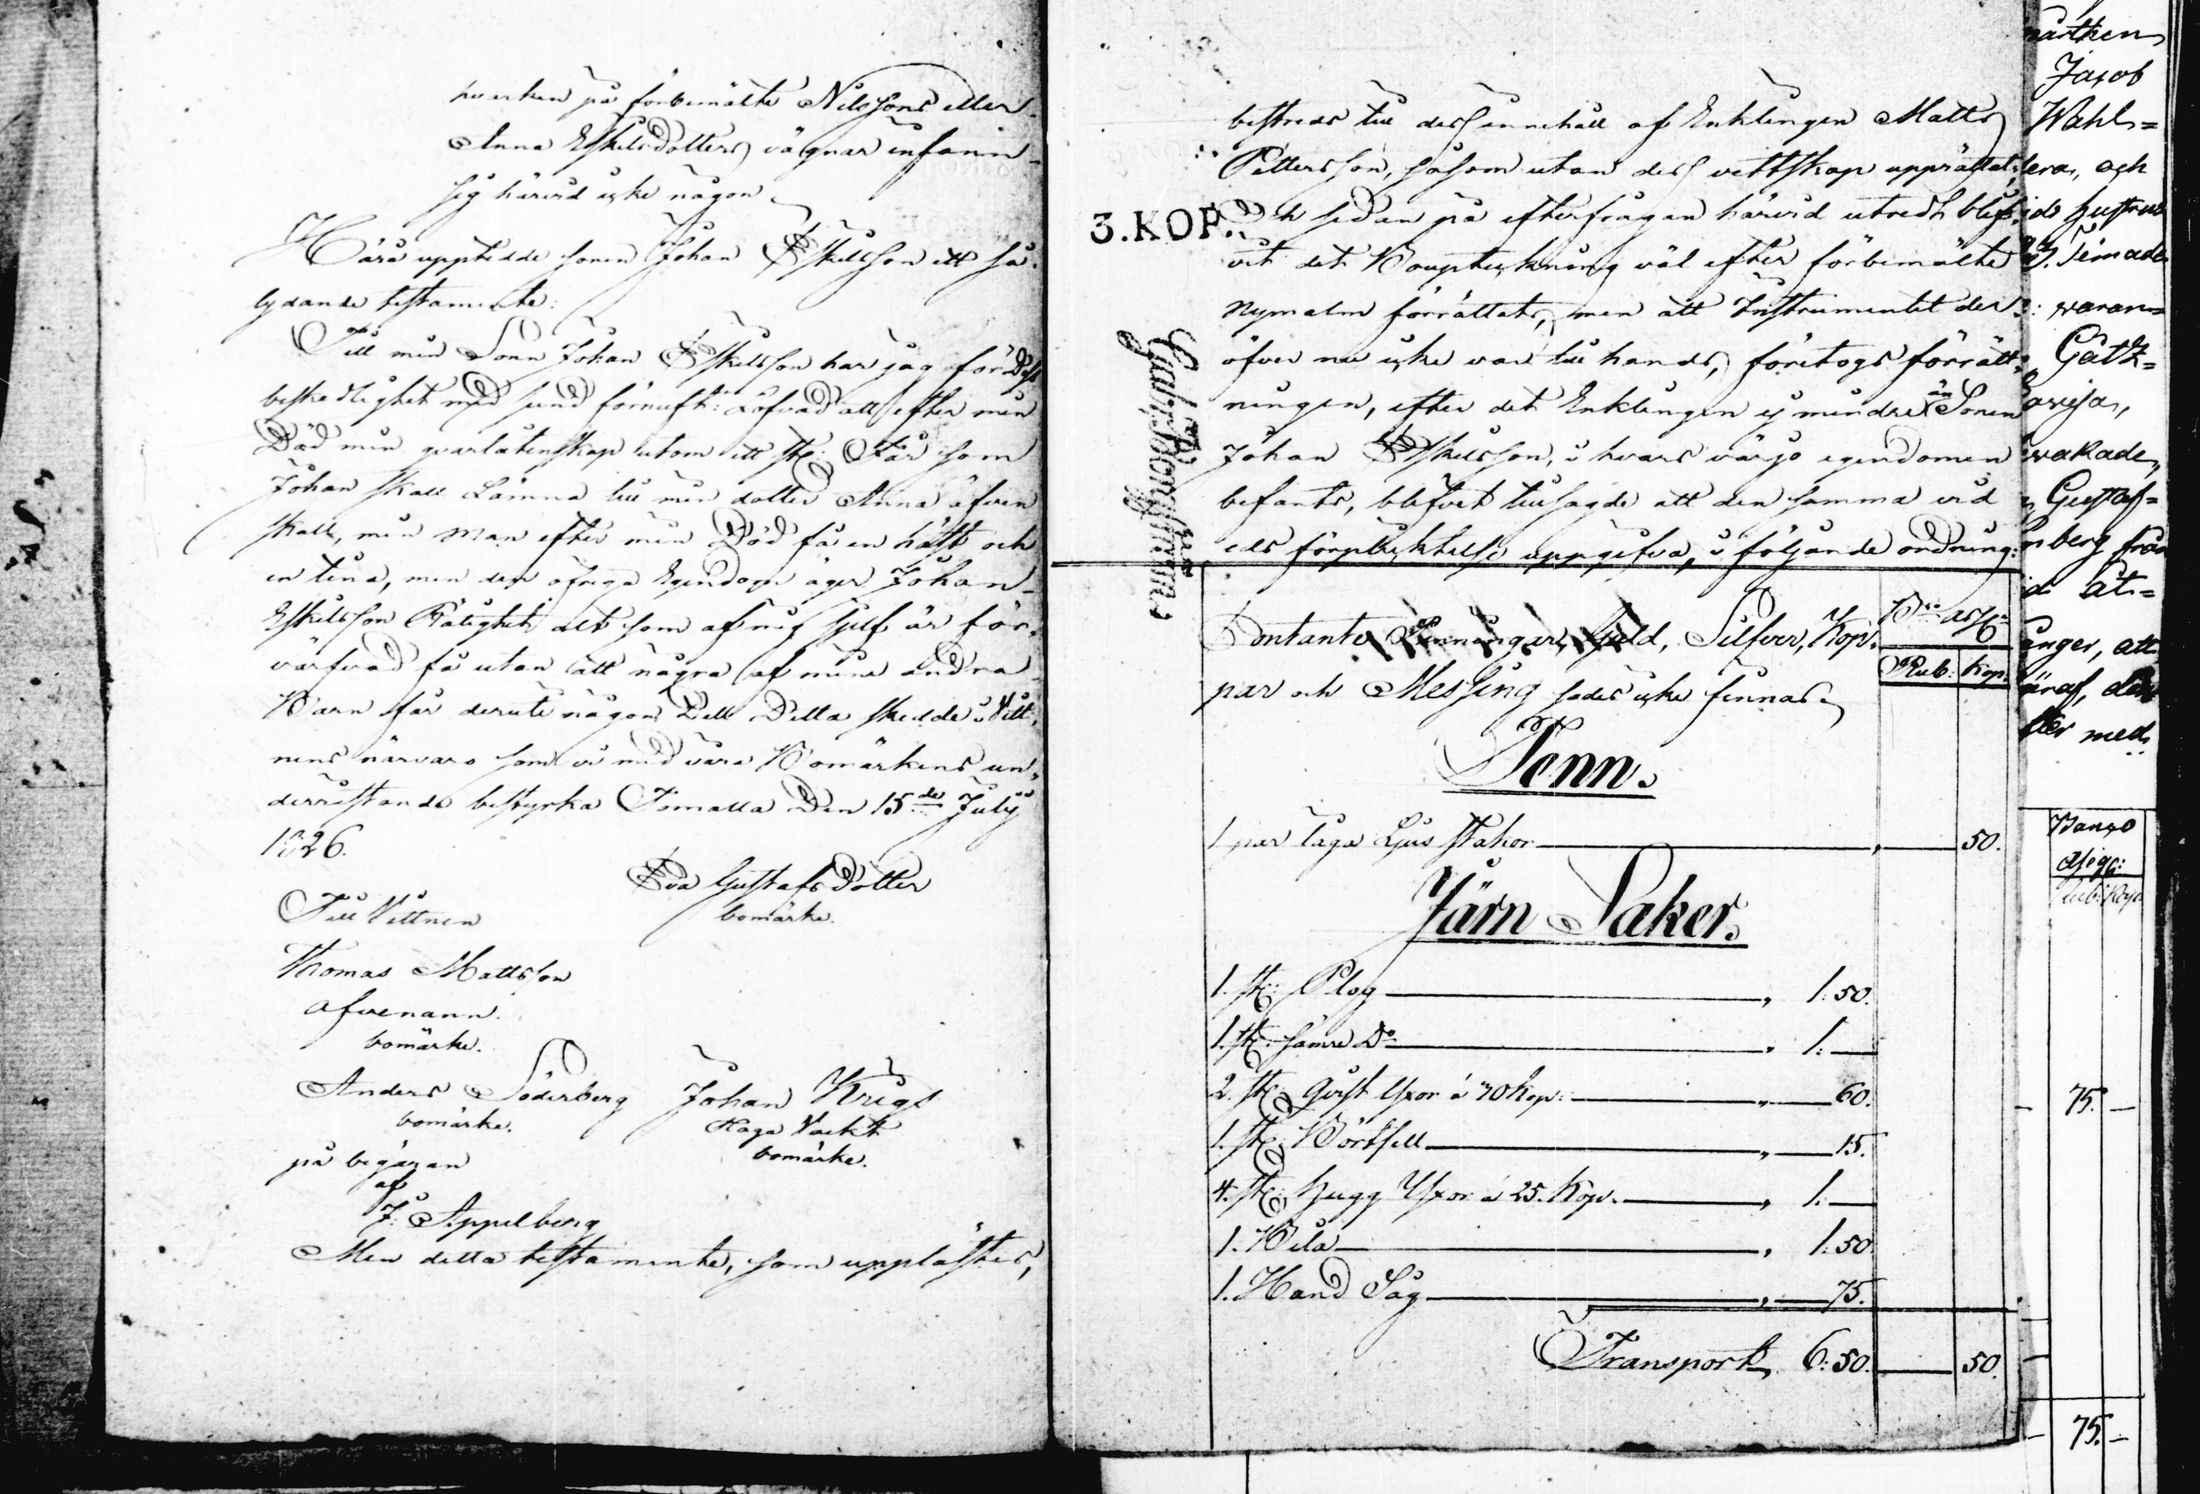 hvarken på förbemälte Nilssons eller
Anna Eskilsdotters vägnar infann
sig härvid icke någon
Härå uppteedde sonen Johan Eskilsson ett så
lydande testamente:
Till min Sonn Johan Eskilsson har jag för Dess
beskedlighet med sund förnuft: Lofvad att efter min
Död min qvarlåtenskap utom ett st: Får som
Johan skall Lämna till min dotter Anna äfven
skall, min man efter min Död få en häst och
en tina, men den öfriga Egendom äger Johan
Eskilsson Rätighet alt som af mig sjelf är för-
värfvad få utan att några af mine andra
Barn får deruti någon Dell Detta skedde i Vitt-
nens närvaro som vi med våra Bomärkens un-
derristande bestyrka Tomalla Den 15de Julÿ
1826.
Eva Gustafs Dotter
bomärke.
Till Vittnen
Thomas Mattsson
afvenann.
bomärke.
Anders Söderberg Johan Krigs
bomärke. Haga Vackt
bomärke.
på begäran
af
J: Appelberg
Men detta testamente, som upplästes,
bestreds till dess innehåll af Enklingen Matts
Pettersson, såsom utan dess vettskap upprättat;
3.KOP.
Och sedan på efterfrågan härvid utredt blef-
vit det Bouptekning väl efter förbemälte
Nymalm förrättats, men att Instrumentet der-
öfver nu icke var till hands, företogs förrätt-
ningen, efter det Enklingen ej mindre än Sonen
Johan Eskilsson, i hvars värjo egendomen
befants, blefvet tillsagde att den samma vid
eds förplicktelse uppgifva, i följande ordning:
B:co Ass:
Rub: Kop:
Contante Penningar, Guld, Silfver, Kop-
par och Messing sades icke finnas
Tenn.
1 par låga Ljus stakor 50.
Järn Saker.
1. st: Plog 1:50.
1. st: sämre Do 1:
2. st: Gvist Yxor á 30 Kop: 60.
1. st: 15.
4. st: Hugg Yxor á 25. Kop. 1:
1. Bila 1:50
1. Hand Såg 75.
Transport, 6:50. 50.
Jacob
Wahl=
lera, och
ids hustrus
waran=
Gatk=
wakade,
Gustaf=
nberg från
åt=
enger, att
äraf, den
fter med
Banco
Assig:
Rub: Kop
75.
75.